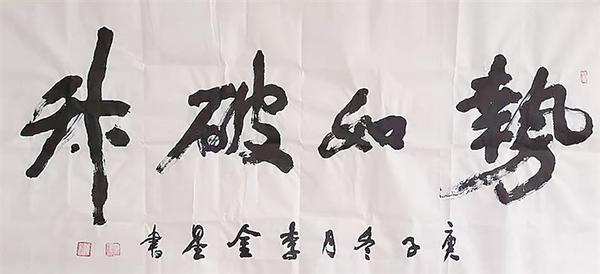 勢如破竹
庚子冬月李金星書